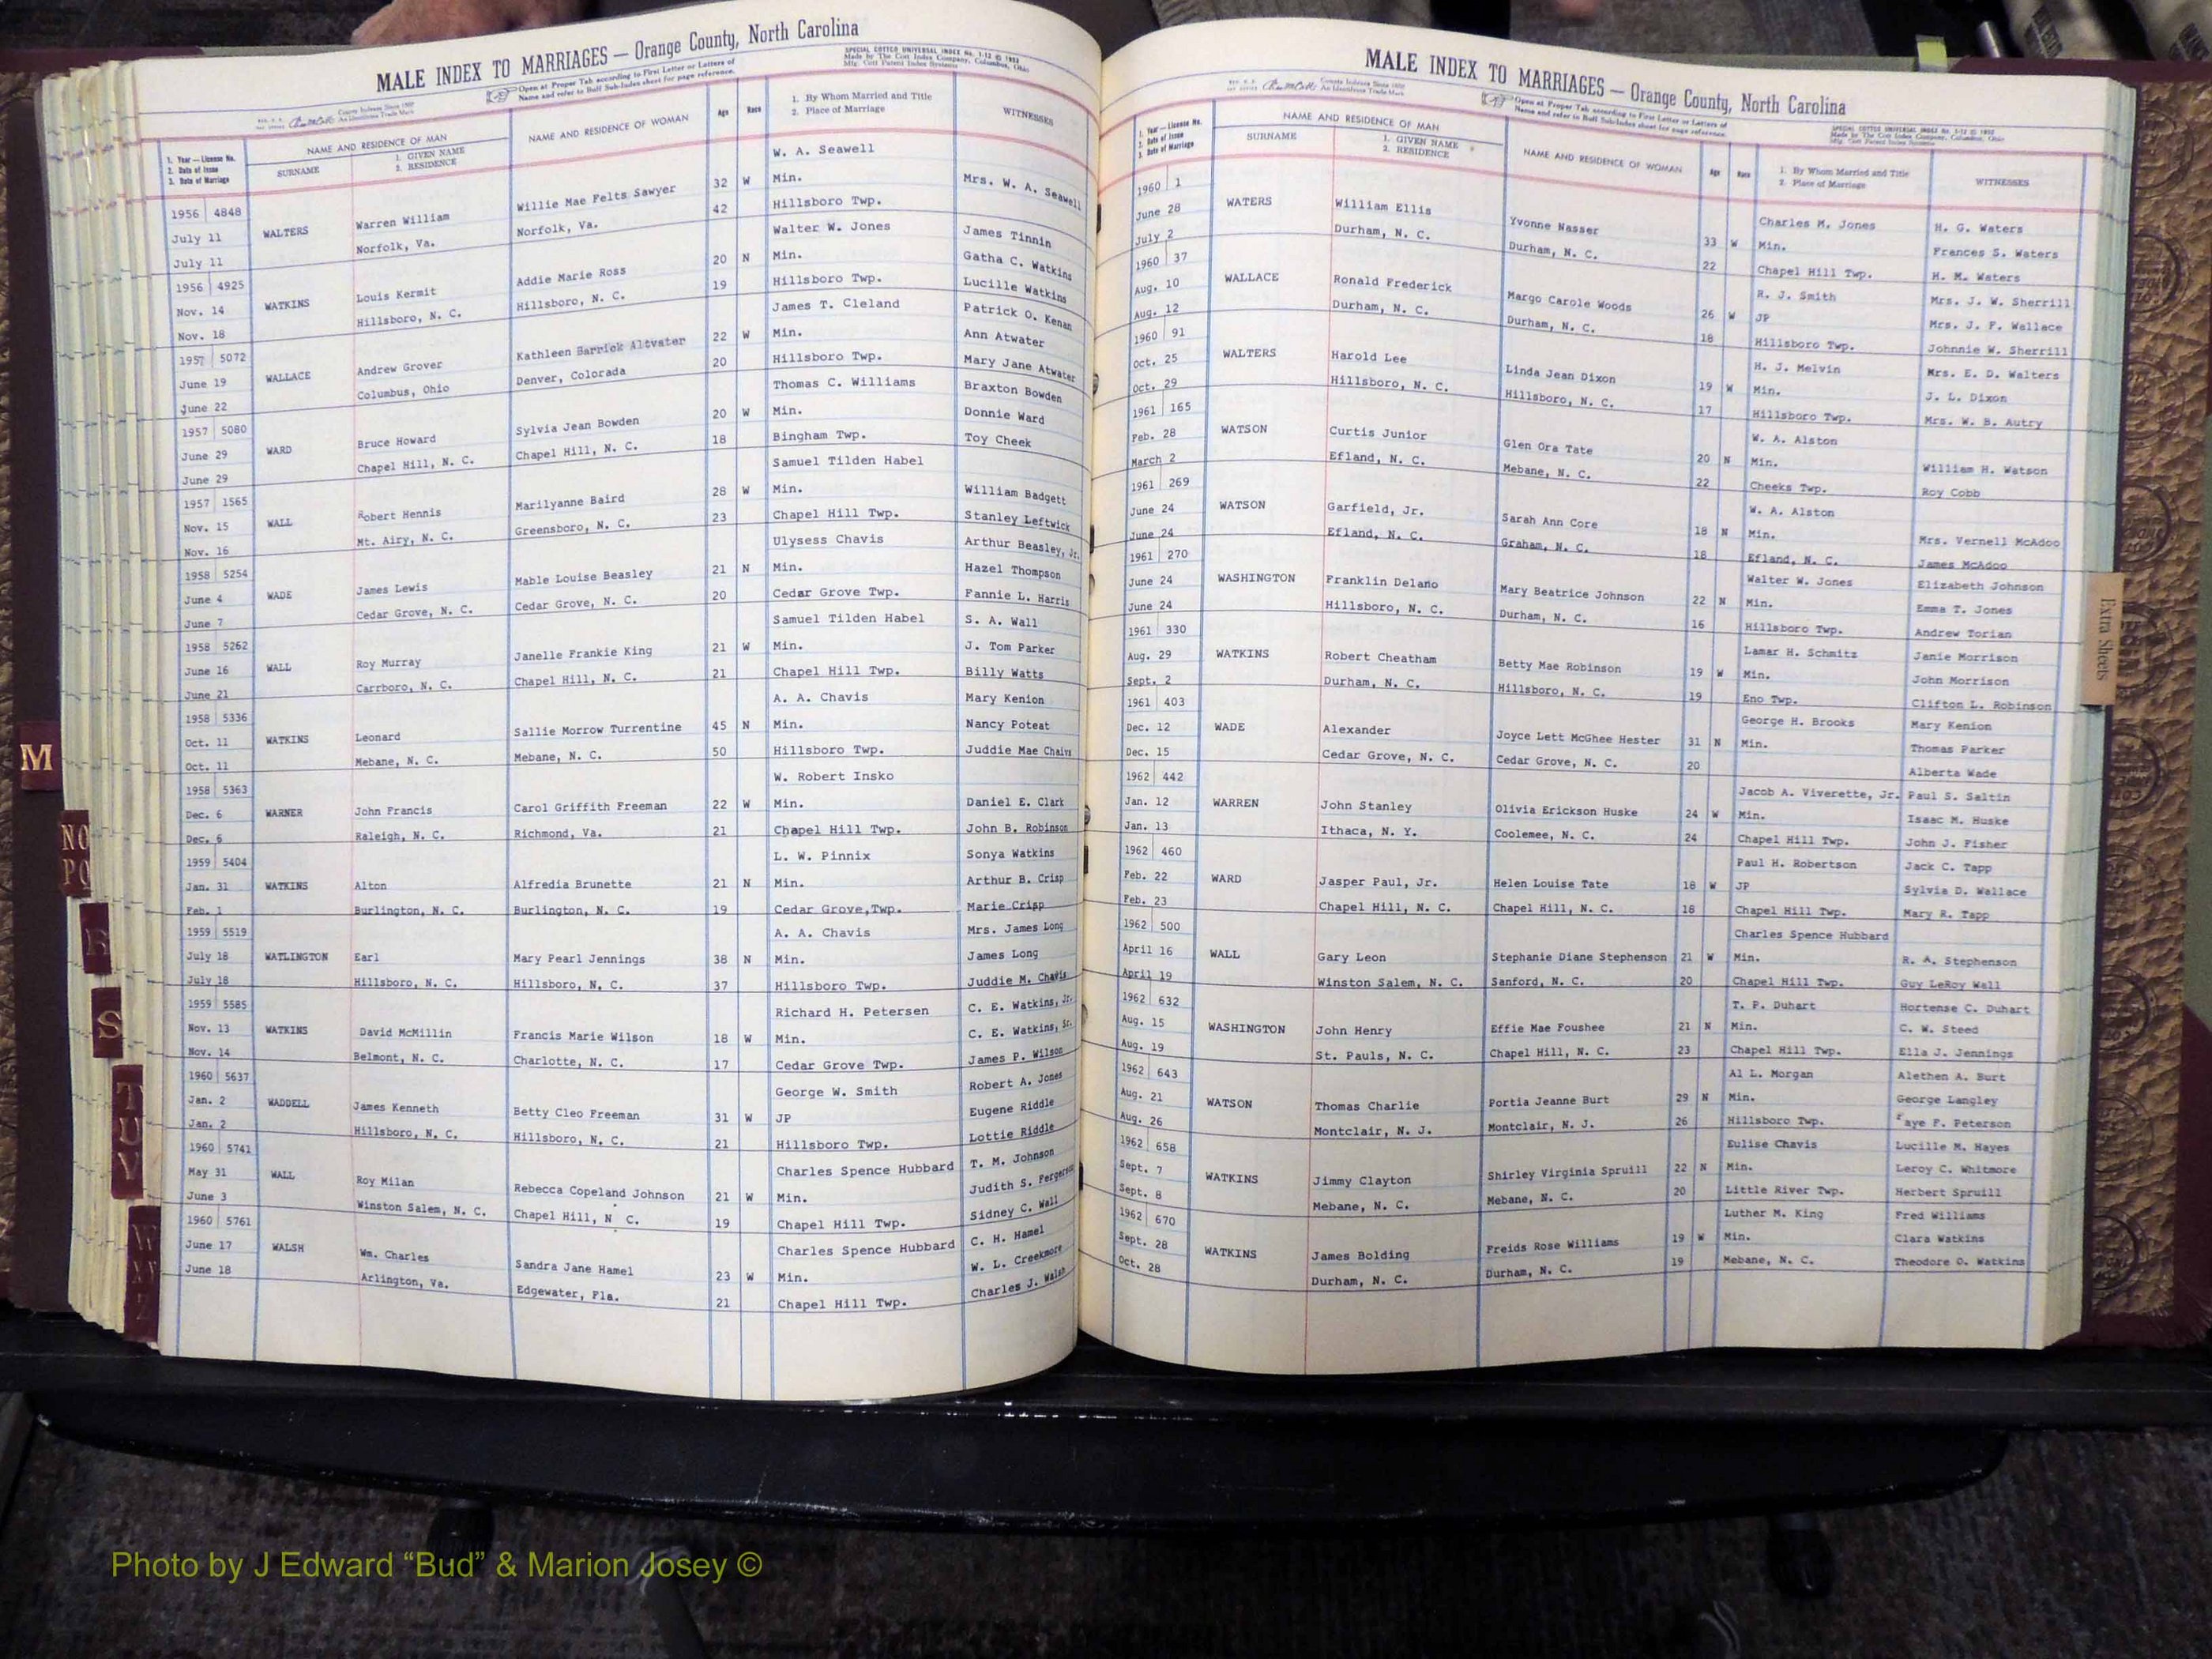 MALE INDEX TO MARRIAGES — Orange County, North Carolina
Open at Proper Tab according to First Letter or Letters of
Name and refer to Buff Sub-Index sheet for page reference.
SPECIAL COTTCO UNIVERSAL INDEX No. 1-12 © 1953
Made by The Cott Index Company, Columbus, Ohio
Mfg. Cott Patent Index Systems
County Indexes Since 1888
An Identifying Trade Mark
1. Year — License No.
2. Date of Issue
3. Date of Marriage
NAME AND RESIDENCE OF MAN
SURNAME
1. GIVEN NAME
2. RESIDENCE
NAME AND RESIDENCE OF WOMAN
Age
Race
1. By Whom Married and Title
2. Place of Marriage
WITNESSES
W. A. Seawell
1956 4848 Willie Mae Felts Sawyer 32 W Min. Mrs. W. A. Seawell
July 11 WALTERS Warren William Norfolk, Va. 42 Hillsboro Twp.
July 11 Norfolk, Va.
Walter W. Jones James Tinnin
1956 4925 Addie Marie Ross 20 N Min. Gatha C. Watkins
Nov. 14 WATKINS Louis Kermit Hillsboro, N. C. 19 Hillsboro Twp. Lucille Watkins
Nov. 18 Hillsboro, N. C.
James T. Cleland Patrick O. Kenan
1957 5072 Kathleen Barrick Altvater 22 W Min. Ann Atwater
June 19 WALLACE Andrew Grover Denver, Colorada 20 Hillsboro Twp. Mary Jane Atwater
June 22 Columbus, Ohio
Thomas C. Williams Braxton Bowden
1957 5080 Sylvia Jean Bowden 20 W Min. Donnie Ward
June 29 WARD Bruce Howard Chapel Hill, N. C. 18 Bingham Twp. Toy Cheek
June 29 Chapel Hill, N. C.
Samuel Tilden Habel
1957 1565 Marilyanne Baird 28 W Min. William Badgett
Nov. 15 WALL Robert Hennis Greensboro, N. C. 23 Chapel Hill Twp. Stanley Leftwick
Nov. 16 Mt. Airy, N. C.
Ulysess Chavis Arthur Beasley, Jr.
1958 5254 Mable Louise Beasley 21 N Min. Hazel Thompson
June 4 WADE James Lewis Cedar Grove, N. C. 20 Cedar Grove Twp. Fannie L. Harris
June 7 Cedar Grove, N. C.
Samuel Tilden Habel S. A. Wall
1958 5262 Janelle Frankie King 21 W Min. J. Tom Parker
June 16 WALL Roy Murray Chapel Hill, N. C. 21 Chapel Hill Twp. Billy Watts
June 21 Carrboro, N. C.
A. A. Chavis Mary Kenion
1958 5336 Sallie Morrow Turrentine 45 N Min. Nancy Poteat
Oct. 11 WATKINS Leonard Mebane, N. C. 50 Hillsboro Twp. Juddie Mae Chaivs
Oct. 11 Mebane, N. C.
W. Robert Insko
1958 5363 Carol Griffith Freeman 22 W Min. Daniel E. Clark
Dec. 6 WARNER John Francis Richmond, Va. 21 Chapel Hill Twp. John B. Robinson
Dec. 6 Raleigh, N. C.
L. W. Pinnix Sonya Watkins
1959 5404 Alfredia Brunette 21 N Min. Arthur B. Crisp
Jan. 31 WATKINS Alton Burlington, N. C. 19 Cedar Grove,Twp. Marie Crisp
Feb. 1 Burlington, N. C.
A. A. Chavis Mrs. James Long
1959 5519 Mary Pearl Jennings 38 N Min. James Long
July 18 WATLINGTON Earl Hillsboro, N. C. 37 Hillsboro Twp. Juddie M. Chavis
July 18 Hillsboro, N. C.
Richard H. Petersen C. E. Watkins, Jr.
1959 5585 Francis Marie Wilson 18 W Min. C. E. Watkins, Sr.
Nov. 13 WATKINS David McMillin Charlotte, N. C. 17 Cedar Grove Twp. James P. Wilson
Nov. 14 Belmont, N. C.
George W. Smith Robert A. Jones
1960 5637 Betty Cleo Freeman 31 W JP Eugene Riddle
Jan. 2 WADDELL James Kenneth Hillsboro, N. C. 21 Hillsboro Twp. Lottie Riddle
Jan. 2 Hillsboro, N. C.
Charles Spence Hubbard T. M. Johnson
1960 5741 Rebecca Copeland Johnson 21 W Min. Judith S. Fergerson
May 31 WALL Roy Milan Chapel Hill, N C. 19 Chapel Hill Twp. Sidney C. Wall
June 3 Winston Salem, N. C.
Charles Spence Hubbard C. H. Hamel
1960 5761 Sandra Jane Hamel 23 W Min. W. L. Creekmore
June 17 WALSH Wm. Charles Edgewater, Fla. 21 Chapel Hill Twp. Charles J. Walsh
June 18 Arlington, Va.
M
NO
PQ
R
S
T
U
V
W
Z
MALE INDEX TO MARRIAGES — Orange County, North Carolina
County Indexes Since 1888
An Identifying Trade Mark
Open at Proper Tab according to First Letter or Letters of
Name and refer to Buff Sub-Index sheet for page reference.
SPECIAL COTTCO UNIVERSAL INDEX No. 1-12 © 1953
Made by The Cott Index Company, Columbus, Ohio
Mfg. Cott Patent Index Systems
1. Year — License No.
2. Date of Issue
3. Date of Marriage
NAME AND RESIDENCE OF MAN
SURNAME
1. GIVEN NAME
2. RESIDENCE
NAME AND RESIDENCE OF WOMAN
Age
Race
1. By Whom Married and Title
2. Place of Marriage
WITNESSES
1960 1 Charles M. Jones H. G. Waters
June 28 WATERS William Ellis Yvonne Nasser 33 W Min. Frances S. Waters
July 2 Durham, N. C. Durham, N. C. 22 Chapel Hill Twp. H. M. Waters
1960 37 R. J. Smith Mrs. J. W. Sherrill
Aug. 10 WALLACE Ronald Frederick Margo Carole Woods 26 W JP Mrs. J. F. Wallace
Aug. 12 Durham, N. C. Durham, N. C. 18 Hillsboro Twp. Johnnie W. Sherrill
1960 91 H. J. Melvin Mrs. E. D. Walters
Oct. 25 WALTERS Harold Lee Linda Jean Dixon 19 W Min. J. L. Dixon
Oct. 29 Hillsboro, N. C. Hillsboro, N. C. 17 Hillsboro Twp. Mrs. W. B. Autry
1961 165 W. A. Alston
Feb. 28 WATSON Curtis Junior Glen Ora Tate 20 N Min. William H. Watson
March 2 Efland, N. C. Mebane, N. C. 22 Cheeks Twp. Roy Cobb
1961 269 W. A. Alston
June 24 WATSON Garfield, Jr. Sarah Ann Core 18 N Min. Mrs. Vernell McAdoo
June 24 Efland, N. C. Graham, N. C. 18 Efland, N. C. James McAdoo
1961 270 Walter W. Jones Elizabeth Johnson
June 24 WASHINGTON Franklin Delano Mary Beatrice Johnson 22 N Min. Emma T. Jones
June 24 Hillsboro, N. C. Durham, N. C. 16 Hillsboro Twp. Andrew Torian
1961 330 Lamar H. Schmitz Janie Morrison
Aug. 29 WATKINS Robert Cheatham Betty Mae Robinson 19 W Min. John Morrison
Sept. 2 Durham, N. C. Hillsboro, N. C. 19 Eno Twp. Clifton L. Robinson
1961 403 George H. Brooks Mary Kenion
Dec. 12 WADE Alexander Joyce Lett McGhee Hester 31 N Min. Thomas Parker
Dec. 15 Cedar Grove, N. C. Cedar Grove, N. C. 20 Alberta Wade
1962 442 Jacob A. Viverette, Jr. Paul S. Saltin
Jan. 12 WARREN John Stanley Olivia Erickson Huske 24 W Min. Isaac M. Huske
Jan. 13 Ithaca, N. Y. Coolemee, N. C. 24 Chapel Hill Twp. John J. Fisher
1962 460 Paul H. Robertson Jack C. Tapp
Feb. 22 WARD Jasper Paul, Jr. Helen Louise Tate 18 W JP Sylvia D. Wallace
Feb. 23 Chapel Hill, N. C. Chapel Hill, N. C. 18 Chapel Hill Twp. Mary R. Tapp
1962 500 Charles Spence Hubbard
April 16 WALL Gary Leon Stephanie Diane Stephenson 21 W Min. R. A. Stephenson
April 19 Winston Salem, N. C. Sanford, N. C. 20 Chapel Hill Twp. Guy LeRoy Wall
1962 632 T. P. Duhart Hortense C. Duhart
Aug. 15 WASHINGTON John Henry Effie Mae Foushee 21 N Min. C. W. Steed
Aug. 19 St. Pauls, N. C. Chapel Hill, N. C. 23 Chapel Hill Twp. Ella J. Jennings
1962 643 Al L. Morgan Alethen A. Burt
Aug. 21 WATSON Thomas Charlie Portia Jeanne Burt 29 N Min. George Langley
Aug. 26 Montclair, N. J. Montclair, N. J. 26 Hillsboro Twp. Faye F. Peterson
1962 658 Eulise Chavis Lucille M. Hayes
Sept. 7 WATKINS Jimmy Clayton Shirley Virginia Spruill 22 N Min. Leroy C. Whitmore
Sept. 8 Mebane, N. C. Mebane, N. C. 20 Little River Twp. Herbert Spruill
1962 670 Luther M. King Fred Williams
Sept. 28 WATKINS James Bolding Freids Rose Williams 19 W Min. Clara Watkins
Oct. 28 Durham, N. C. Durham, N. C. 19 Mebane, N. C. Theodore O. Watkins
Extra Sheets
Photo by J Edward “Bud” & Marion Josey ©